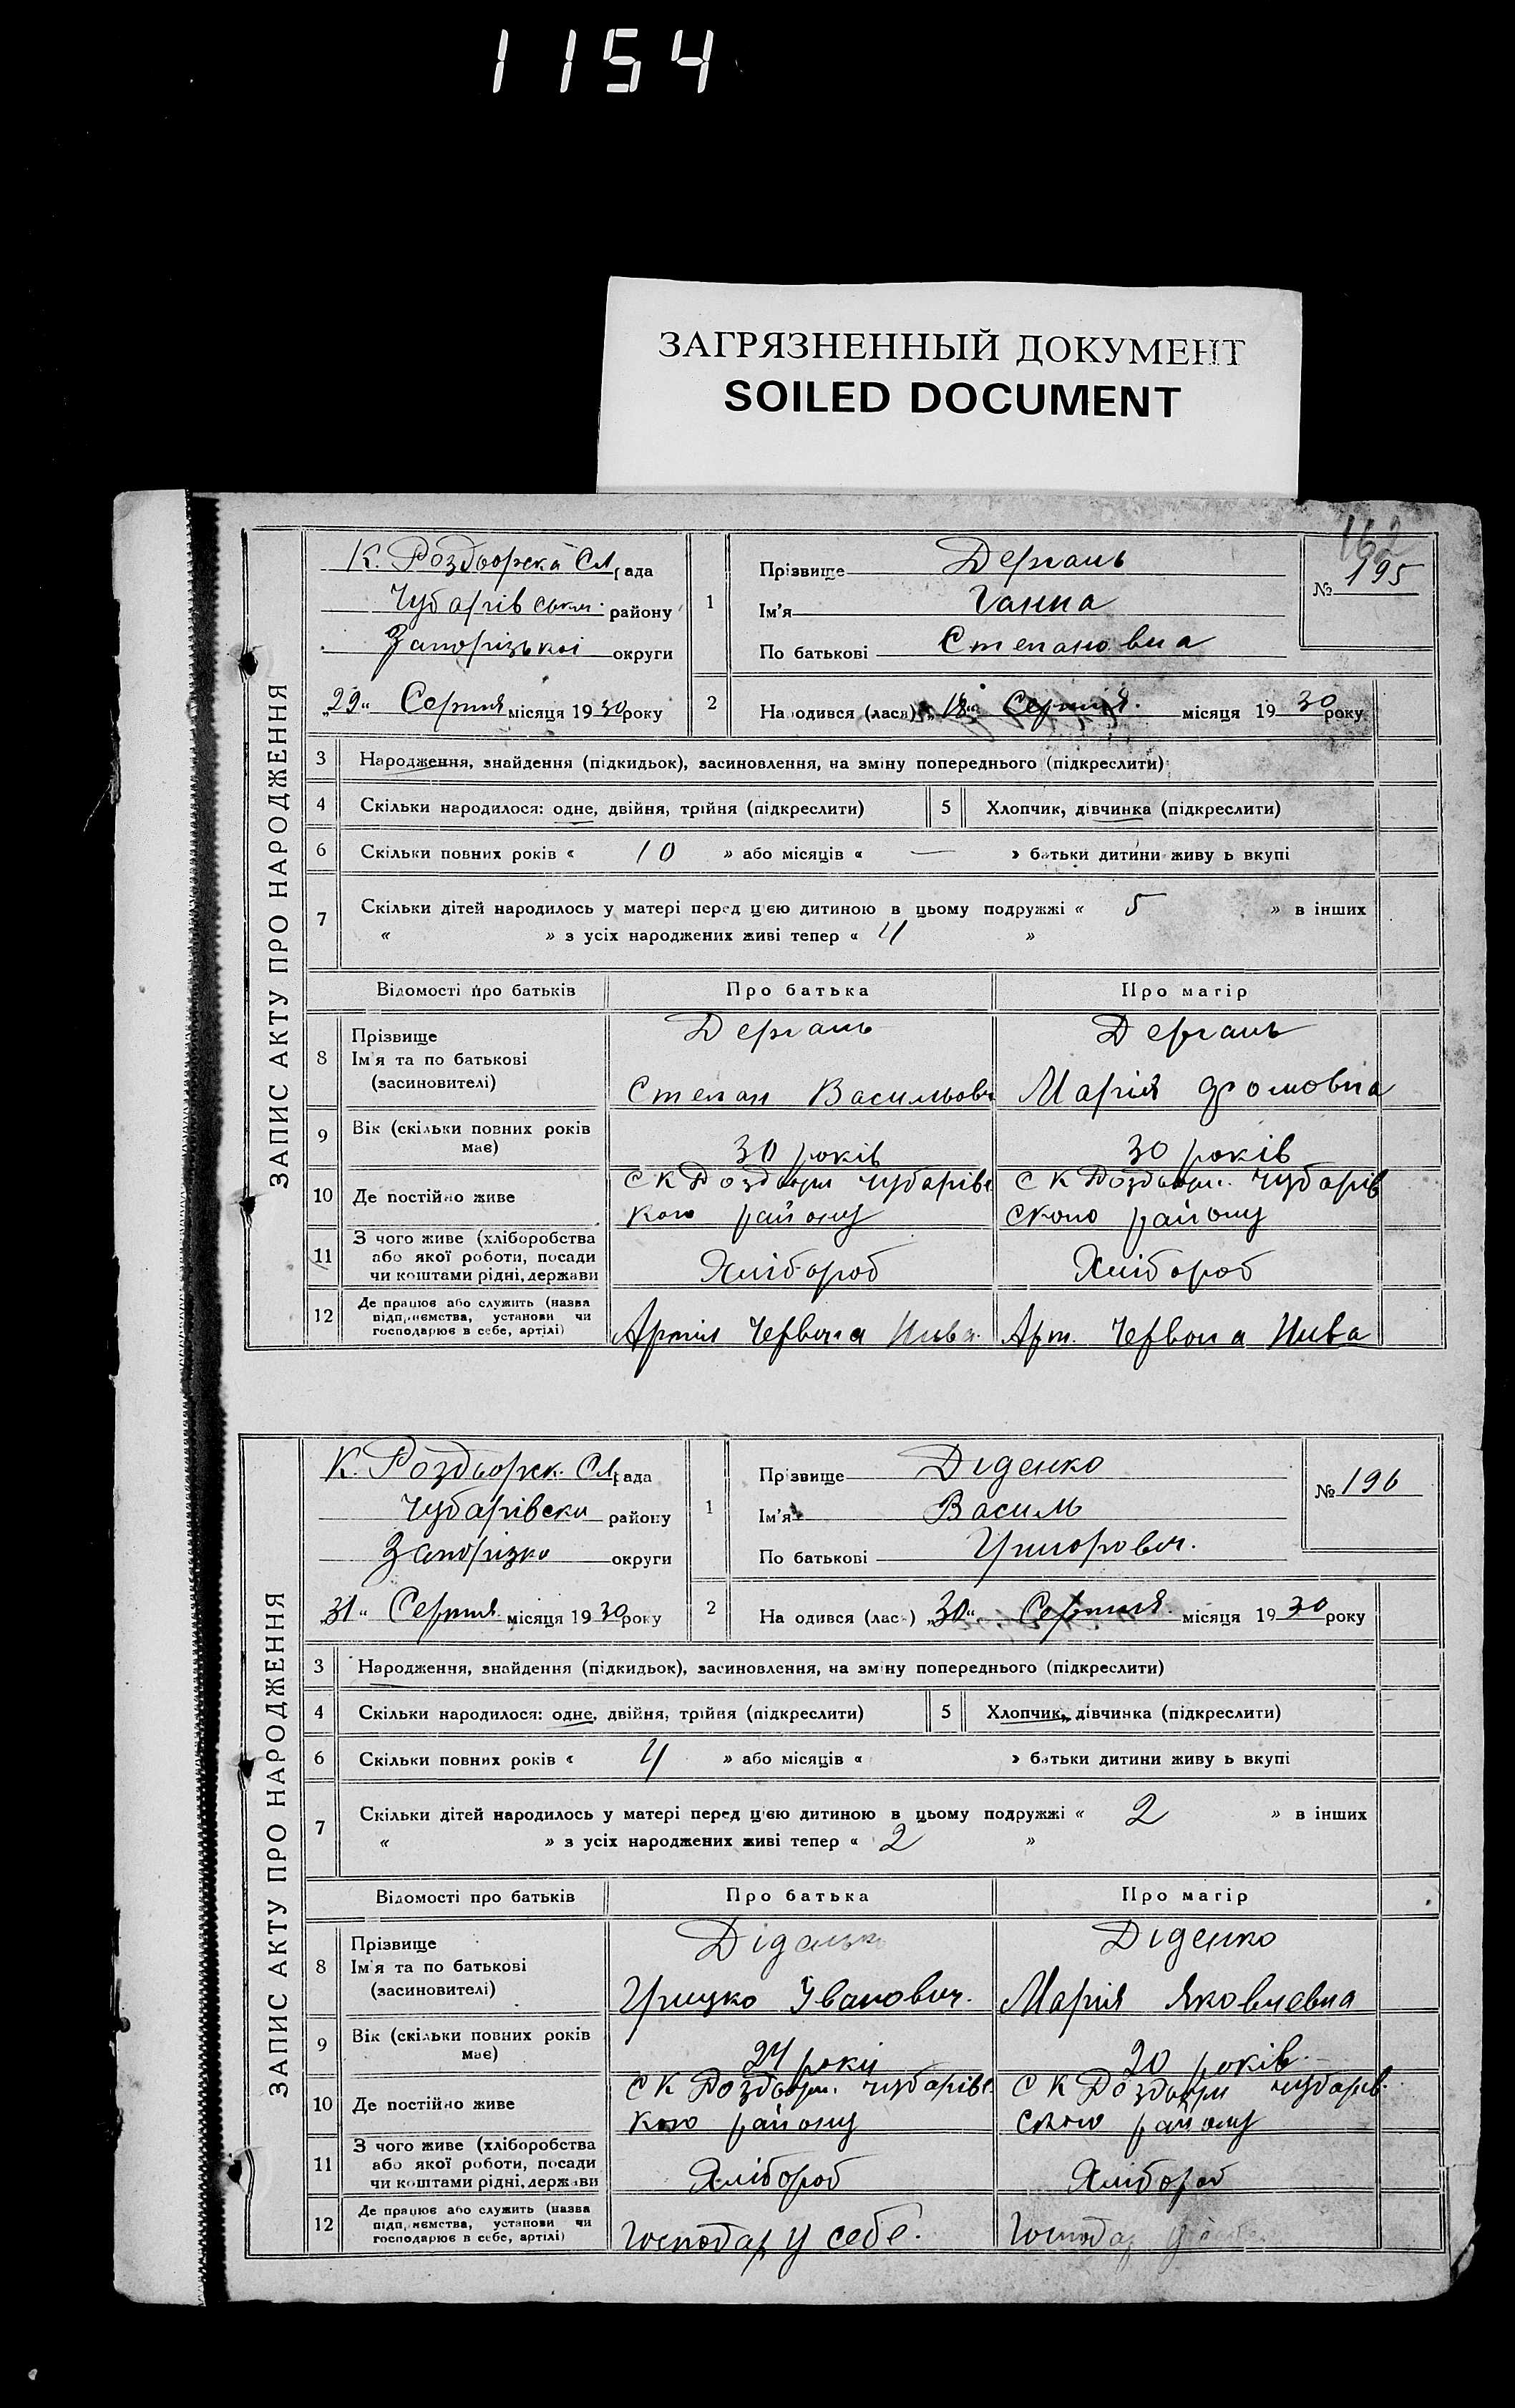 1154
ЗАГРЯЗНЕННЫЙ ДОКУМЕНТ
SOILED DOCUMENT
162
ЗАПИС АКТУ ПРО НАРОДЖЕННЯ
К. Роздорска С рада
Чубарівськ. району
Запорізькоі округи
„29“ Серпня місяця 1930 року
1
Прізвище Дергань
Ім'я Ганна
По батькові Степановна
№ 195
2 Народився (лася) „18“ Серпня місяця 1930 року
3 Народження, знайдення (підкидьок), засиновлення, на зміну попереднього (підкреслити)
4 Скільки народилося: одне, двійня, трійня (підкреслити) 5 Хлопчик, дівчинка (підкреслити)
6 Скільки повних років « 10 » або місяців « — » батьки дитини живуть вкупі
7 Скільки дітей народилось у матері перед цією дитиною в цьому подружжі « 5 » в інших
« » з усіх народжених живі тепер « 4 »
Відомості про батьків Про батька Про матір
8 Прізвище
Ім'я та по батькові
(засиновителі)
Дергань
Степан Васильов
Дергань
Марія Фомовна
9 Вік (скільки повних років має)
30 років 30 років
10 Де постійно живе
С К Роздори Чубарівс
кого району
С К Роздори. Чубарів
ского району
11 З чого живе (хліборобства
або якої роботи, посади
чи коштами рідні, держави
Хлібороб Хлібороб
12 Де працює або служить (назва
підприємства, установи чи
господарює в себе, артілі)
Артіл Червона Нива. Арт. Червона Нива
ЗАПИС АКТУ ПРО НАРОДЖЕННЯ
К. Роздорск. С рада
Чубарівски району
Запорізко округи
31“ Серпня місяця 1930 року
1
Прізвище Діденко
Ім'я Василь
По батькові Григорович.
№ 196
2 На одився (лас ) „30“ Серпня місяця 1930 року
3 Народження, знайдення (підкидьок), засиновлення, на зміну попереднього (підкреслити)
4 Скільки народилося: одне, двійня, трійня (підкреслити) 5 Хлопчик, дівчинка (підкреслити)
6 Скільки повних років « 4 » або місяців « » батьки дитини живуть вкупі
7 Скільки дітей народилось у матері перед цією дитиною в цьому подружжі « 2 » в інших
« » з усіх народжених живі тепер « 2 »
Відомості про батьків Про батька Про матір
8 Прізвище
Ім'я та по батькові
(засиновителі)
Діденко
Грицко Іванович.
Діденко
Марія Яковлевна
9 Вік (скільки повних років має)
24 роки 20 років.
10 Де постійно живе
С К Роздори. Чубарівс
кого району
С К Роздори Чубарів.
ского району
11 З чого живе (хліборобства
або якої роботи, посади
чи коштами рідні, держави
Хлібороб Хлібороб
12 Де працює або служить (назва
підприємства, установи чи
господарює в себе, артілі)
Господар у себе. Господар у